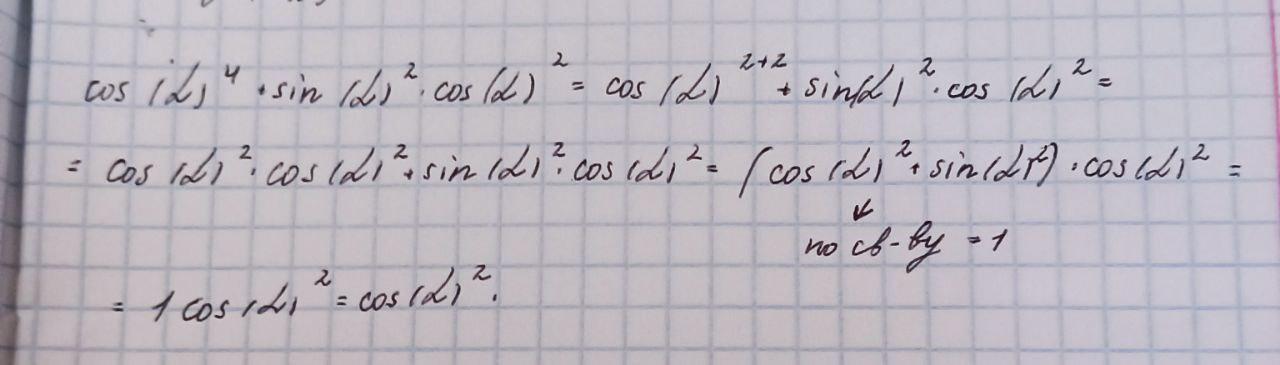 cos (α)⁴ + sin (α)² · cos (α)² = cos (α)²⁺² + sin(α)² · cos (α)² =
= cos (α)² · cos (α)² + sin (α)² · cos (α)² = (cos (α)² + sin(α)²) · cos (α)² =
↙
по св-ву = 1
= 1 cos (α)² = cos (α)².